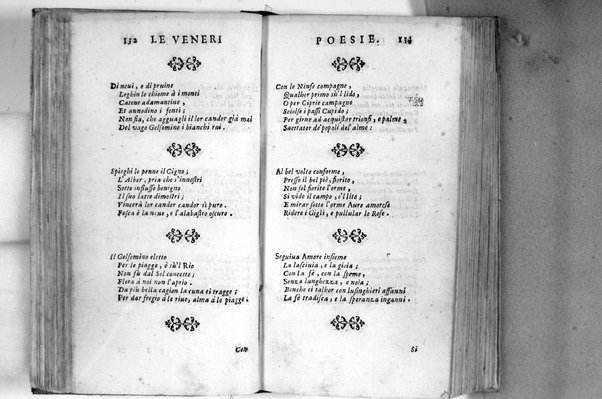 132 LE VENERI
Di neui, e di pruine
Leghin le chiome à i monti
Catene adamantine,
Et annodino i fonti;
Non fia, che agguagli il lor candor già mai
Del vago Gelsomino i bianchi rai.
Spieghi le penne il Cigno;
L'Albor, pria che s'innostri
Sotto influsso benigno
Il suo latte dimostri;
Vincerà lor candor candor sì puro.
Fosca è la neue, e l'alabastro oscuro.
Il Gelsomino eletto
Per le piagge, ò sù'l Rio
Non fù dal Sol concetto;
Flora à noi non l'aprio.
Da più bella cagion la cuna ei tragge;
Per dar fregio à le riue, alma à le piagge.
Con
POESIE. 133
Con le Ninfe compagne,
Qualhor primo sù'l lido,
O per Ciprie campagne
Sciolse i passi Cupido;
Per girne ad acquistar trionfi, e palme
Saettator de' popoli del'alme:
Al bel volto conforme,
Presso il bel piè, fiorito,
Non sol fiorite l'orme,
Si vide il campo, e'l lito;
E mirar sotto l'orme Aure amorose
Ridere i Gigli, e pullular le Rose.
Seguiua Amore insieme
La lasciuia, e la gioia;
Con la fè, con la speme,
Senza lunghezza, e noia;
Benche ei talhor con lusinghieri affanni
La fè tradisca, e la speranza inganni.
Si